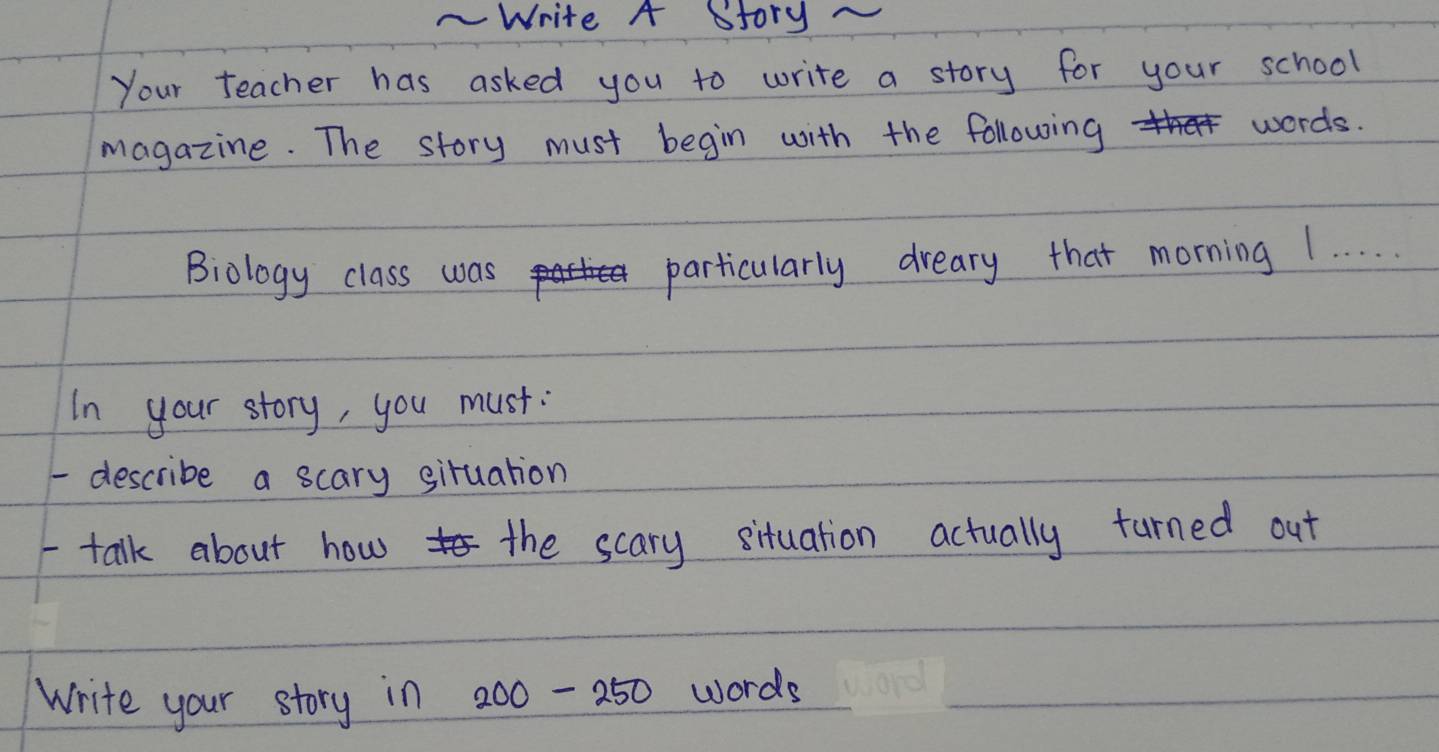 ~ Write A Story ~
Your teacher has asked you to write a story for your school
magazine. The story must begin with the following that words.
Biology class was partica particularly dreary that morning I.....
In your story, you must:
- describe a scary situation
- talk about how to the scary situation actually turned out
-
Write your story in 200 - 250 words word